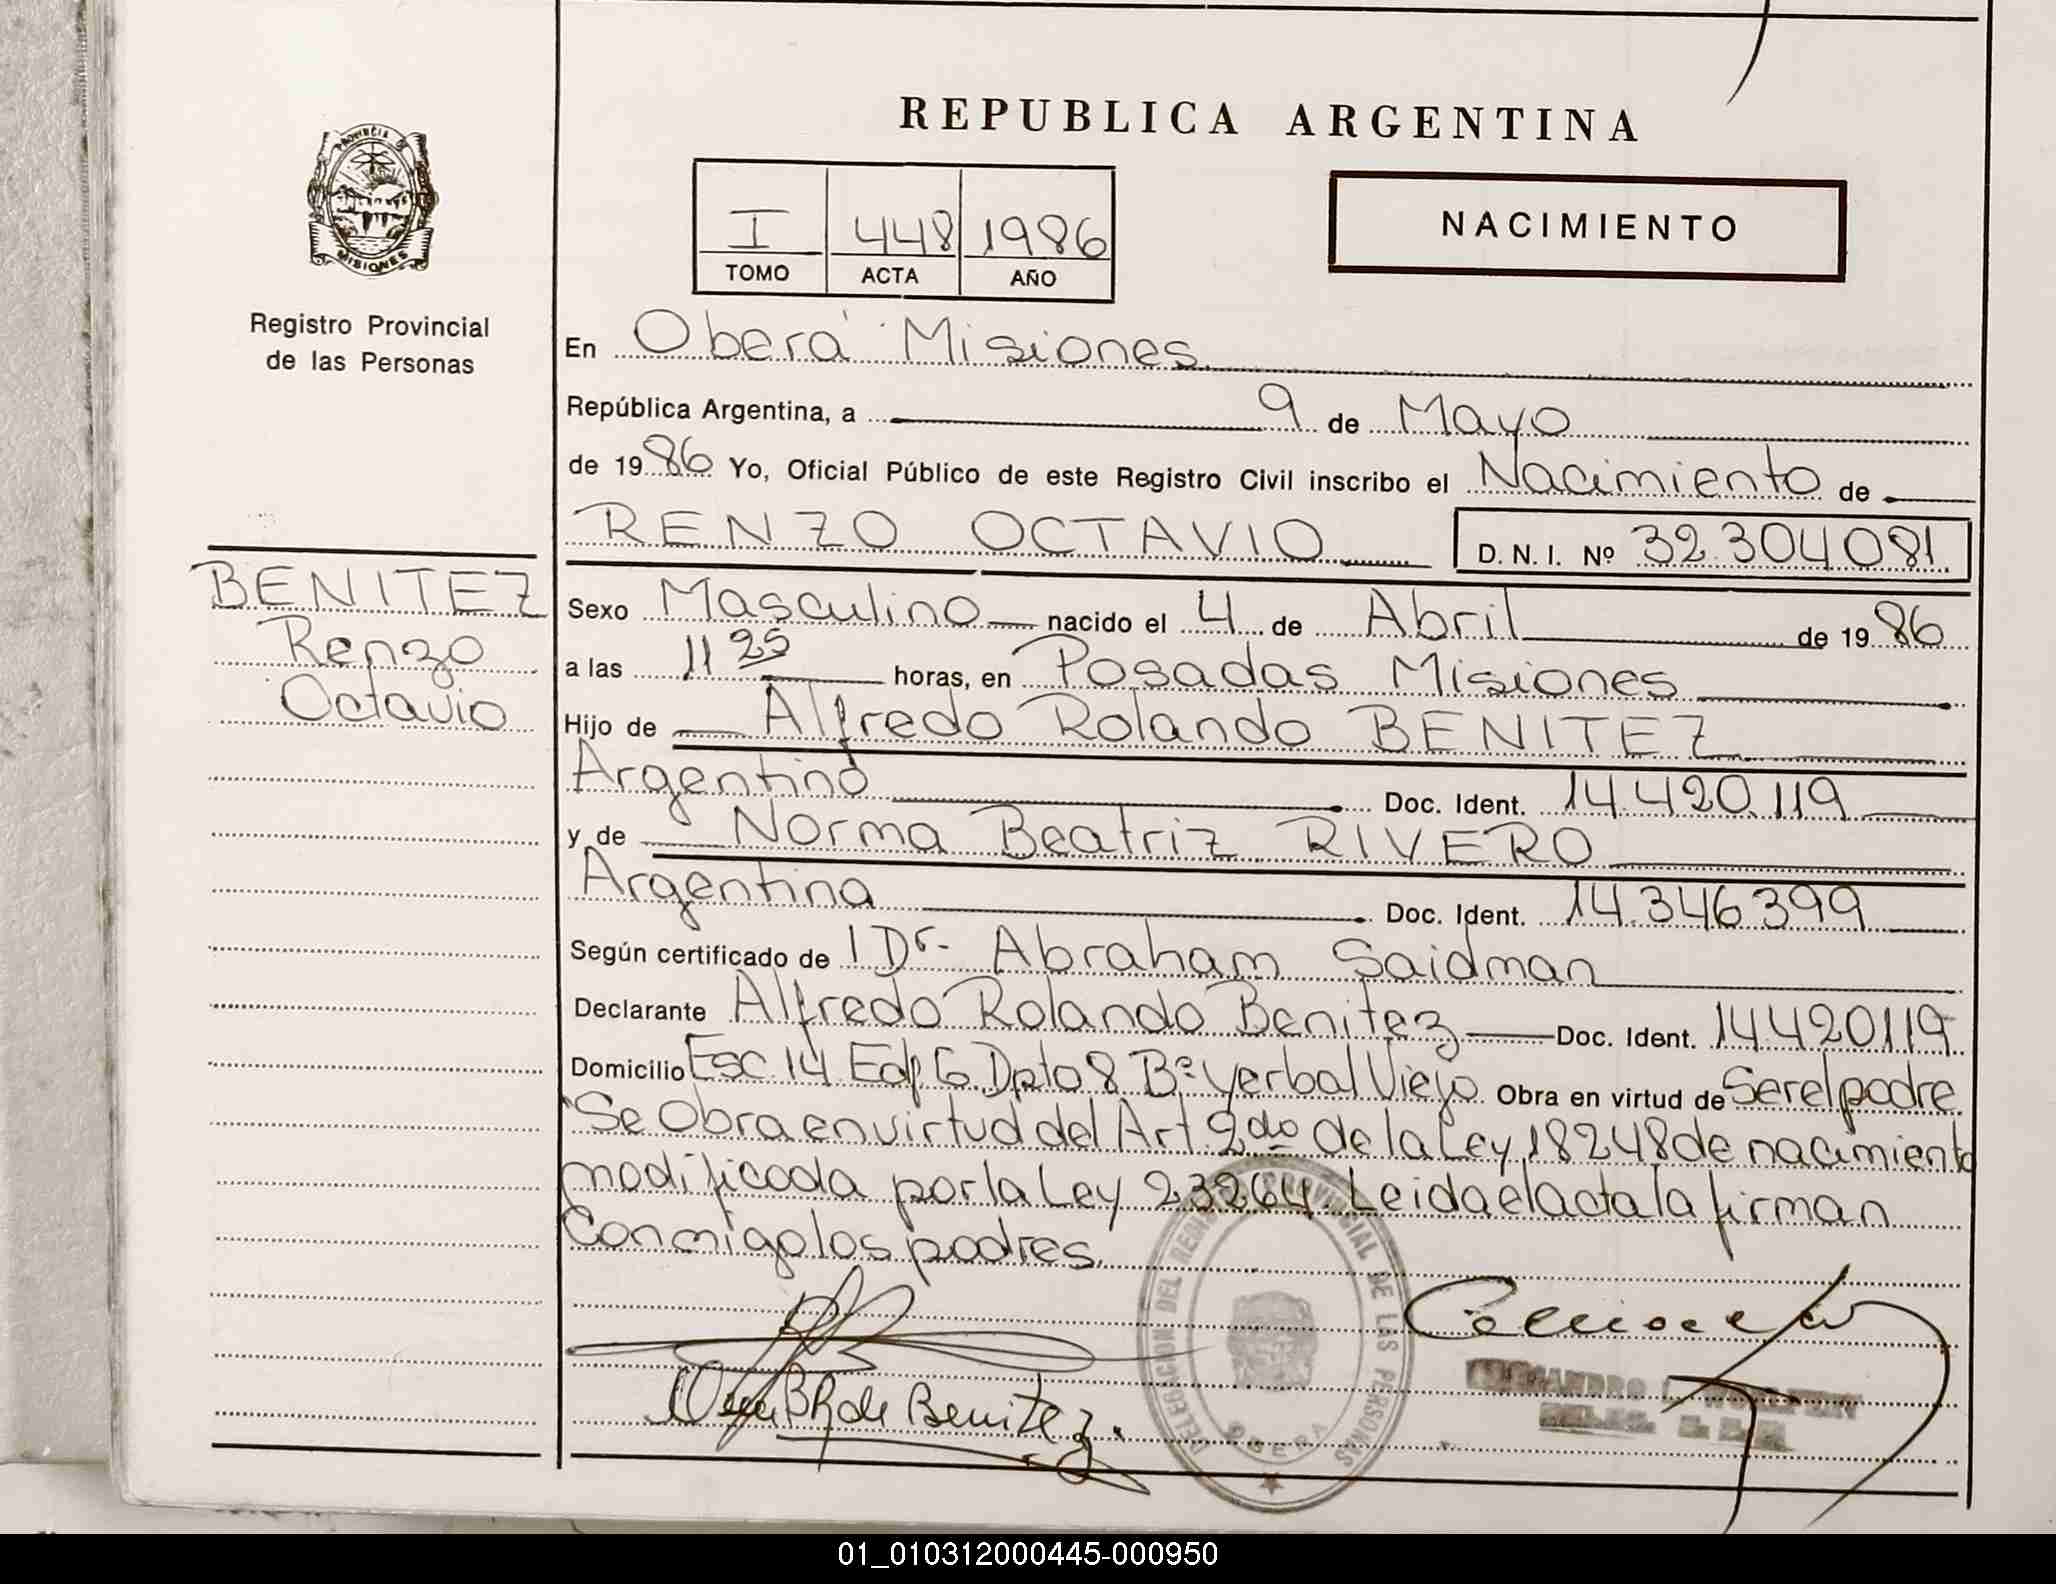 REPUBLICA ARGENTINA
PROVINCIA DE
MISIONES
Registro Provincial
de las Personas
I 448 1986
TOMO ACTA AÑO
NACIMIENTO
En Oberá Misiones
República Argentina, a 9 de Mayo
de 1986 Yo, Oficial Público de este Registro Civil inscribo el Nacimiento de
RENZO OCTAVIO D. N. I. Nº 32.304081
BENITEZ
Renzo
Octavio
Sexo Masculino nacido el 4 de Abril de 1986
a las 11 25 horas, en Posadas Misiones
Hijo de Alfredo Rolando BENITEZ
Argentino Doc. Ident. 14.420.119
y de Norma Beatriz RIVERO
Argentina Doc. Ident. 14.346.399
Según certificado de l Dr. Abraham Saidman
Declarante Alfredo Rolando Benitez Doc. Ident. 14420119
Domicilio Esc 14 Edf 6 Dpto 8 Bº Yerbal Viejo Obra en virtud de Ser el padre
Se Obra en virtud del Art. 2do de la Ley 18248 de nacimiento
modificada por la Ley 23264. Leida el acta la firman
Conmigo los padres.
DELEGACION DEL REGISTRO PROVINCIAL DE LAS PERSONAS
OBERA
de Benitez
01_010312000445-000950